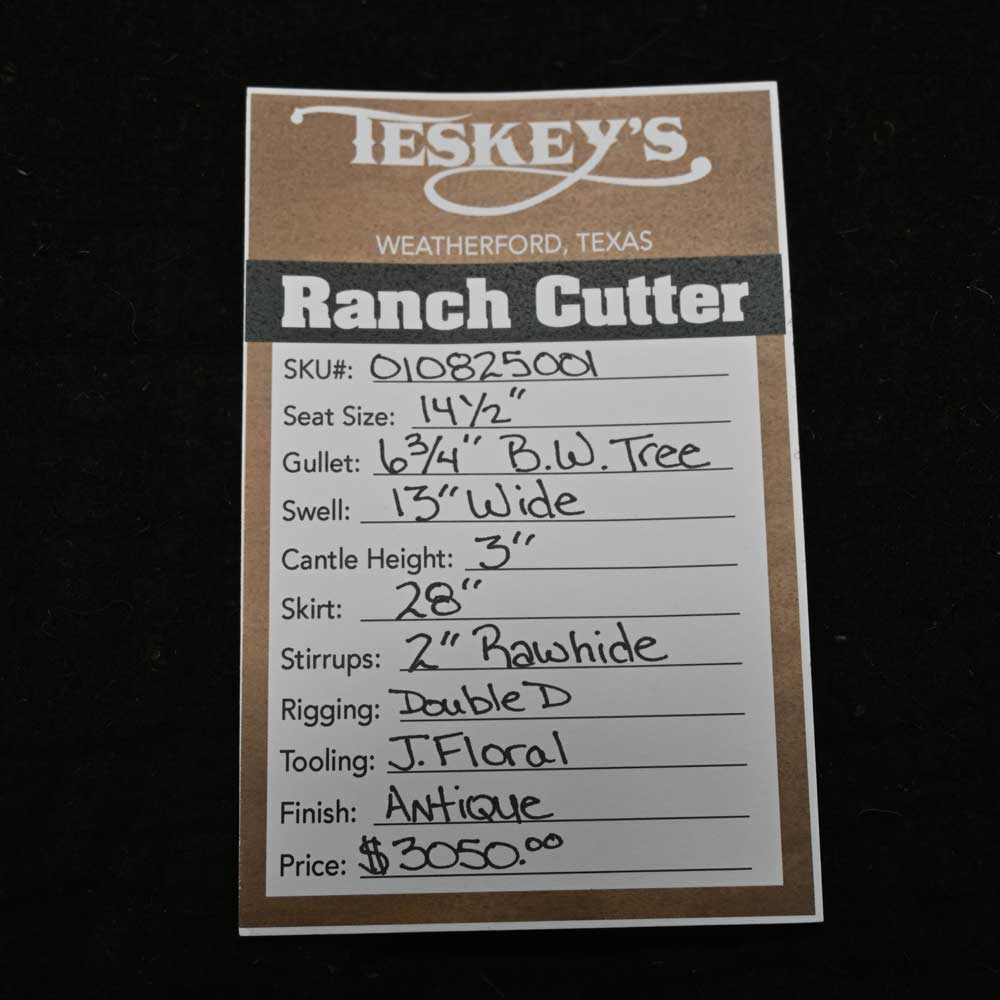 TESKEY'S
WEATHERFORD, TEXAS
Ranch Cutter
SKU#: 010825001
Seat Size: 14 1/2"
Gullet: 6 3/4" B.W. Tree
Swell: 13" Wide
Cantle Height: 3"
Skirt: 28"
Stirrups: 2" Rawhide
Rigging: Double D
Tooling: J. Floral
Finish: Antique
Price: $3050.00